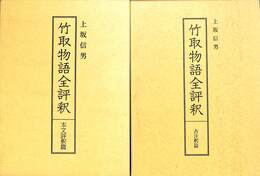 上坂信男
竹取物語全評釈
本文評釈篇
上坂信男
竹取物語全評釈
古注釈篇